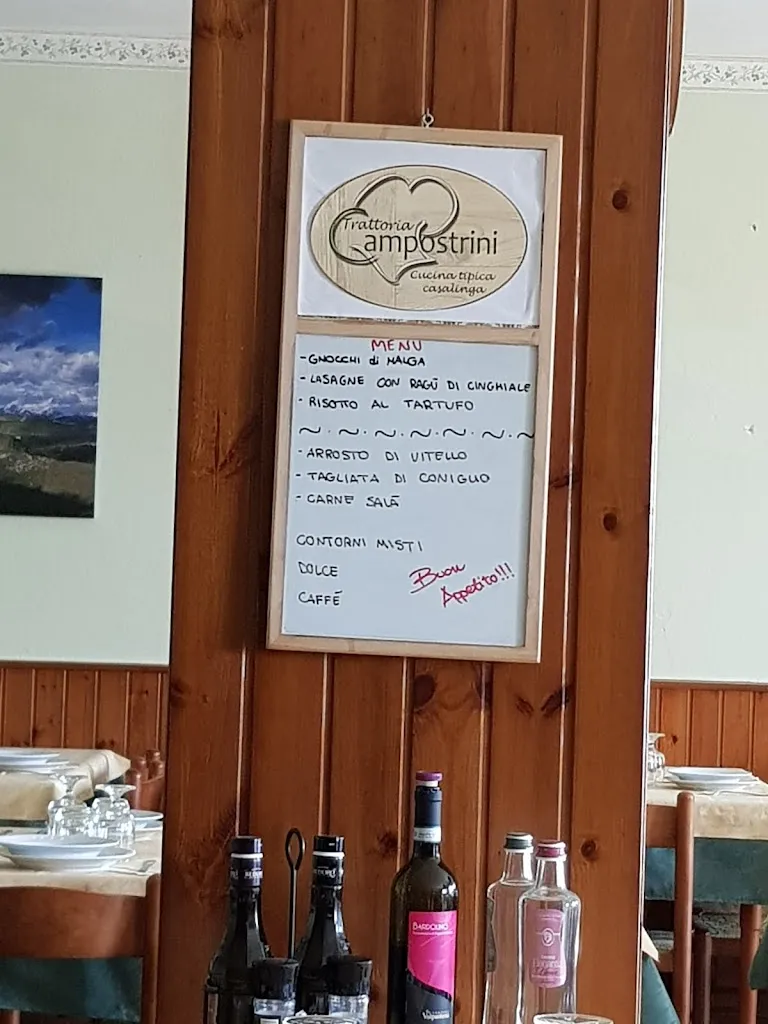 Trattoria
Campostrini
Cucina tipica
casalinga
MENU
- GNOCCHI di MALGA
- LASAGNE CON RAGÙ DI CINGHIALE
- RISOTTO AL TARTUFO
- ARROSTO DI VITELLO
- TAGLIATA DI CONIGLIO
- CARNE SALÀ
CONTORNI MISTI
DOLCE
CAFFÈ
Buon
Appetito!!!
BARDOLINO